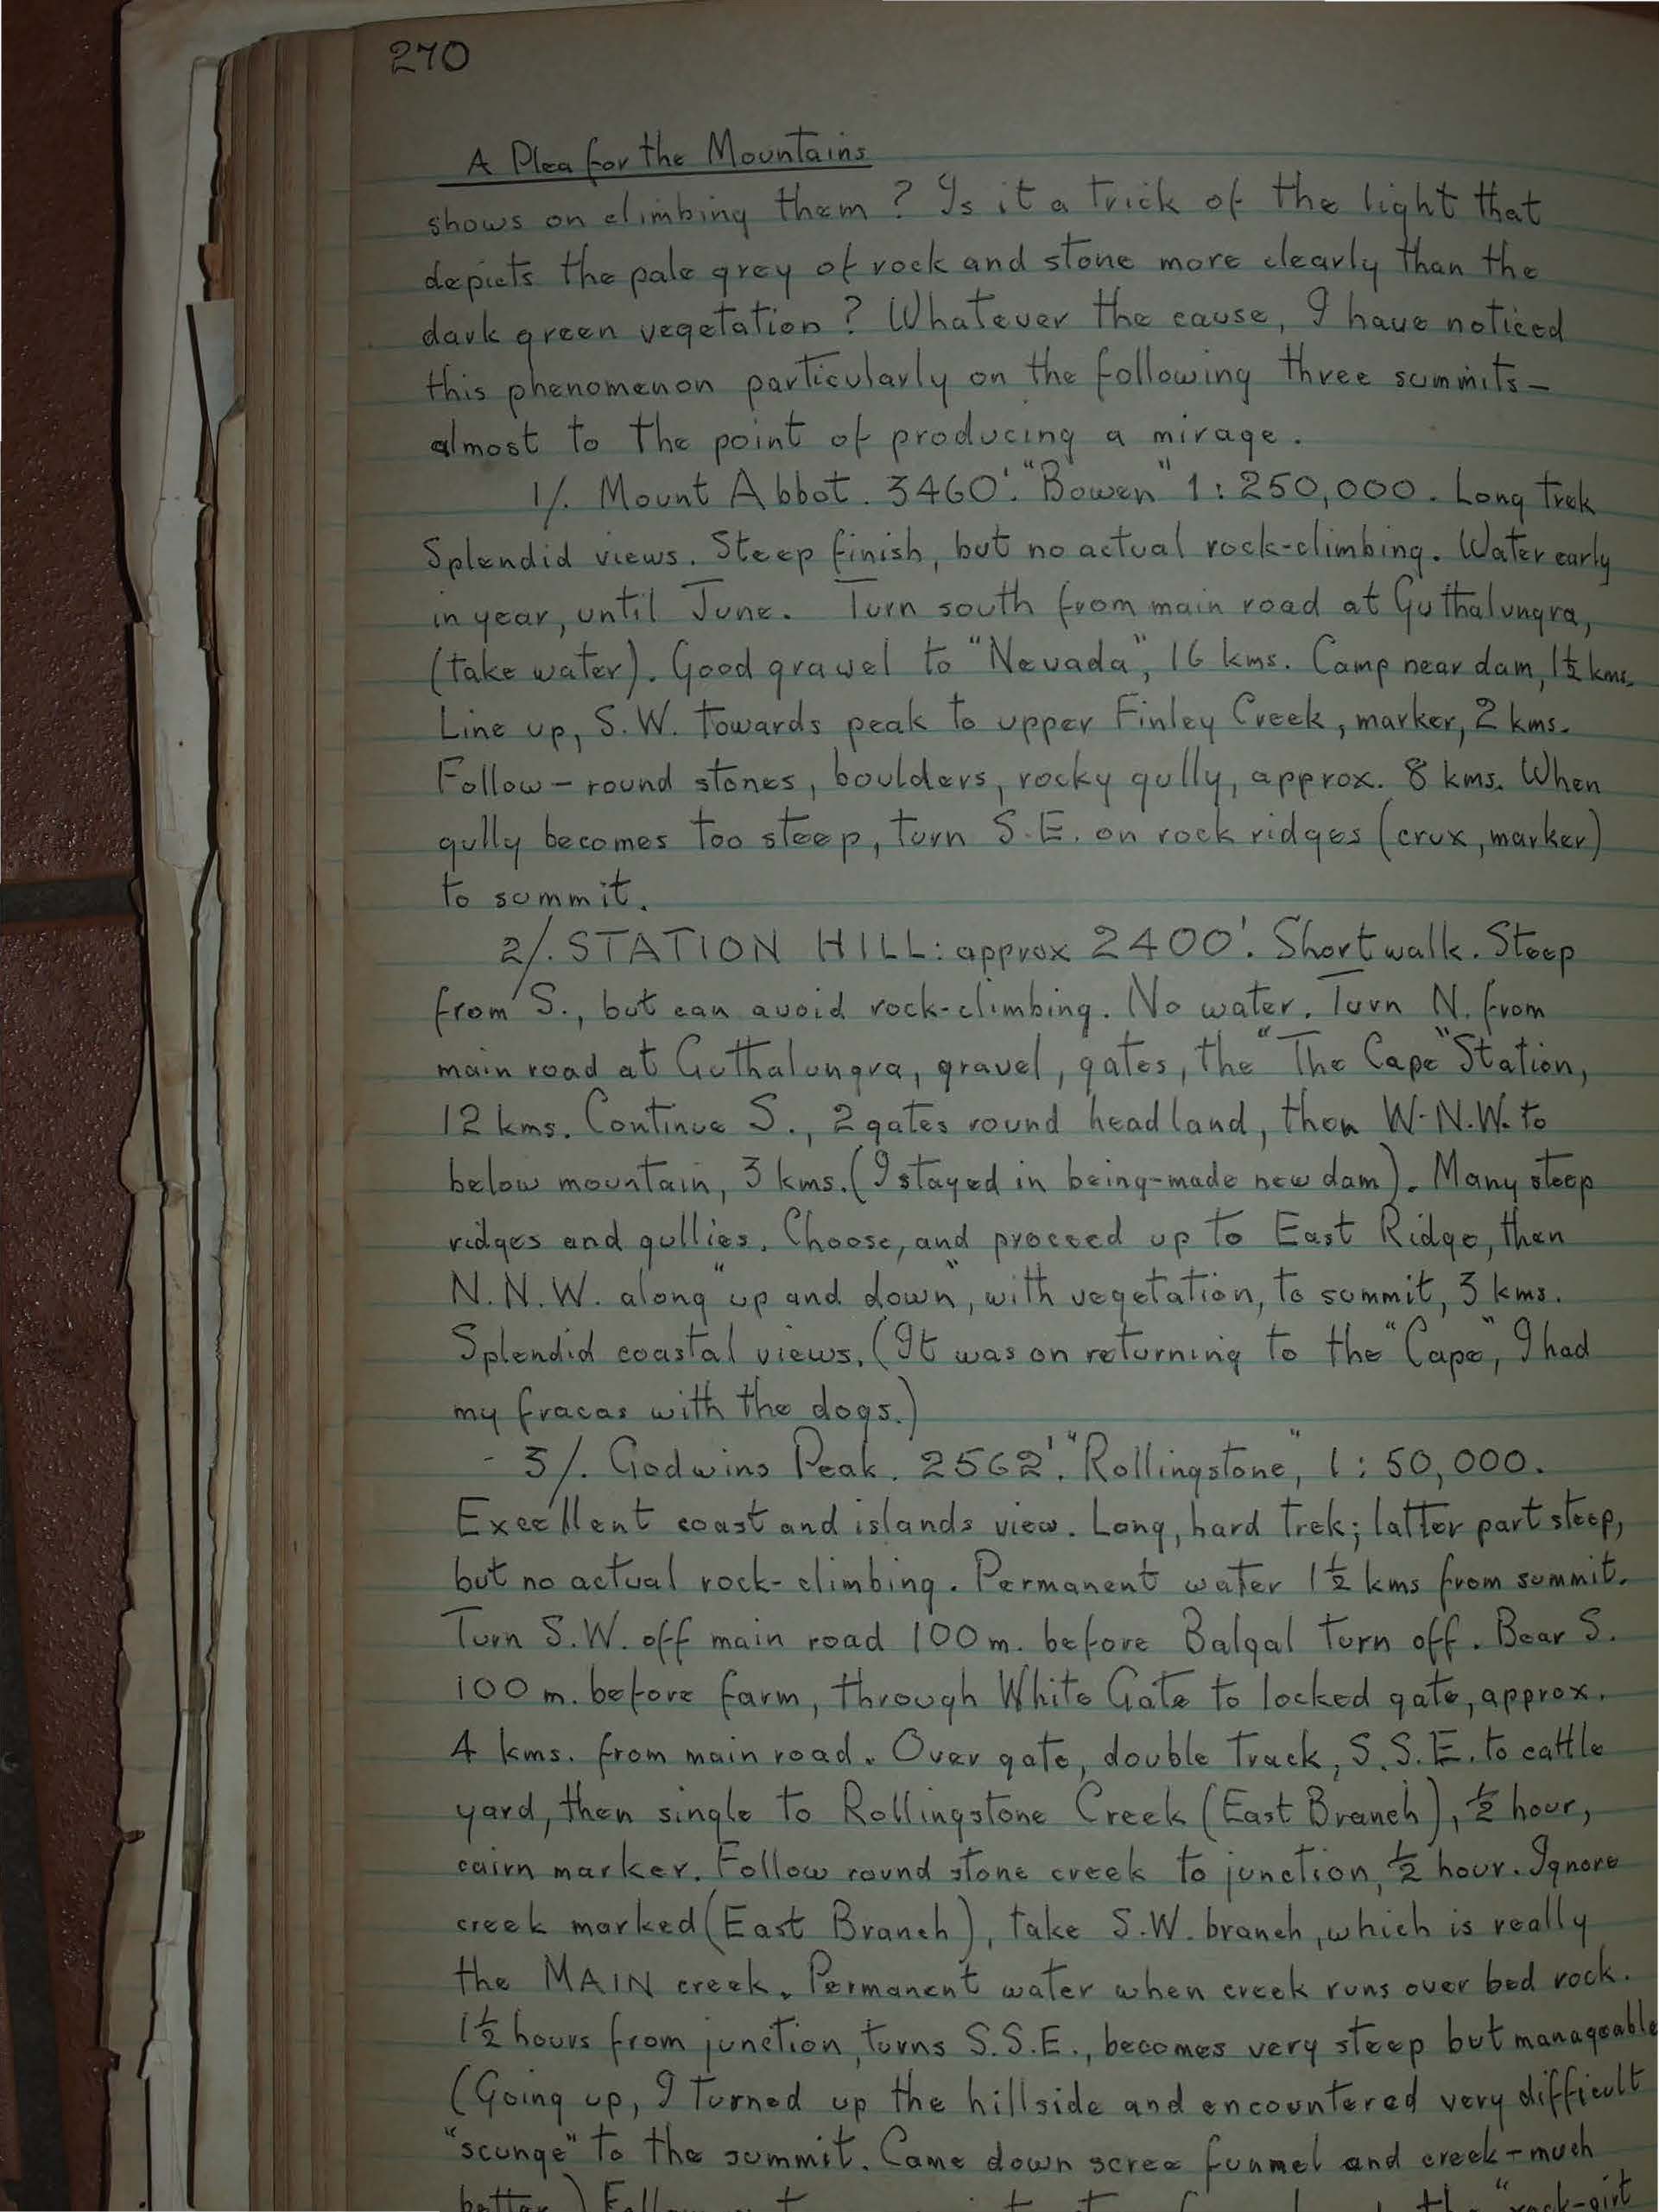 270
A Plea for the Mountains
shows on climbing them? Is it a trick of the light that
depicts the pale grey of rock and stone more clearly than the
dark green vegetation? Whatever the cause, I have noticed
this phenomenon particularly on the following three summits -
almost to the point of producing a mirage.
1/. Mount Abbot. 3460'. "Bowen" 1:250,000. Long trek
Splendid views. Steep finish, but no actual rock-climbing. Water early
in year, until June. Turn south from main road at Guthalungra,
(take water). Good gravel to "Nevada", 16 kms. Camp near dam, 1½ kms.
Line up, S.W. towards peak to upper Finley Creek, marker, 2 kms.
Follow - round stones, boulders, rocky gully, approx. 8 kms. When
gully becomes too steep, turn S.E. on rock ridges (crux, marker)
to summit.
2/. STATION HILL: approx 2400'. Short walk. Steep
from S., but can avoid rock-climbing. No water. Turn N. from
main road at Guthalungra, gravel, gates, the "The Cape" Station,
12 kms. Continue S., 2 gates round headland, then W-N.W. to
below mountain, 3 kms. (I stayed in being-made new dam). Many steep
ridges and gullies. Choose, and proceed up to East Ridge, then
N.N.W. along "up and down", with vegetation, to summit, 3 kms.
Splendid coastal views. (It was on returning to the "Cape", I had
my fracas with the dogs.)
- 3/. Godwins Peak. 2562'. "Rollingstone", 1:50,000.
Excellent coast and islands view. Long, hard trek; latter part steep,
but no actual rock-climbing. Permanent water 1½ kms from summit.
Turn S.W. off main road 100 m. before Balgal turn off. Bear S.
100 m. before farm, through White Gate to locked gate, approx.
4 kms. from main road. Over gate, double track, S.S.E. to cattle
yard, then single to Rollingstone Creek (East Branch), ½ hour,
cairn marker. Follow round stone creek to junction, ½ hour. Ignore
creek marked (East Branch), take S.W. branch, which is really
the MAIN creek. Permanent water when creek runs over bed rock.
1½ hours from junction, turns S.S.E., becomes very steep but manageable
(Going up, I turned up the hillside and encountered very difficult
"scunge" to the summit. Came down scree funnel and creek - much
better.)